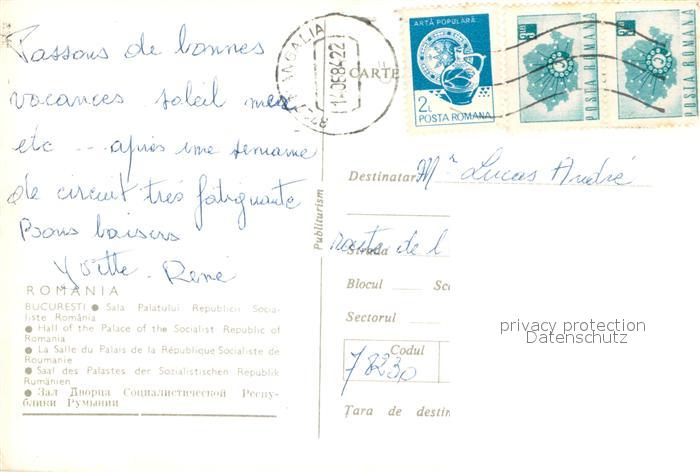 Passons de bonnes
vacances soleil mer
etc -- après une semaine
de circuit très fatiguante
Bons baisers
Yvette - René
ROMANIA
BUCUREȘTI ● Sala Palatului Republicii Socia-
liste România
● Hall of the Palace of the Socialist Republic of
Romania
● La Salle du Palais de la République Socialiste de
Roumanie
● Saal des Palastes der Sozialistischen Republik
Rumänien
● Зал Дворца Социалистической Респу-
блики Румынии
Publiturism
MANGALIA
CARTE
ARTĂ POPULARĂ
2L
POSTA ROMANA
POSTA ROMANA
POSTA ROMANA
Destinatar Mr Lucas André
Strada route de l
Blocul
Sc
Sectorul
Codul
78230
Țara de destin
privacy protection
Datenschutz